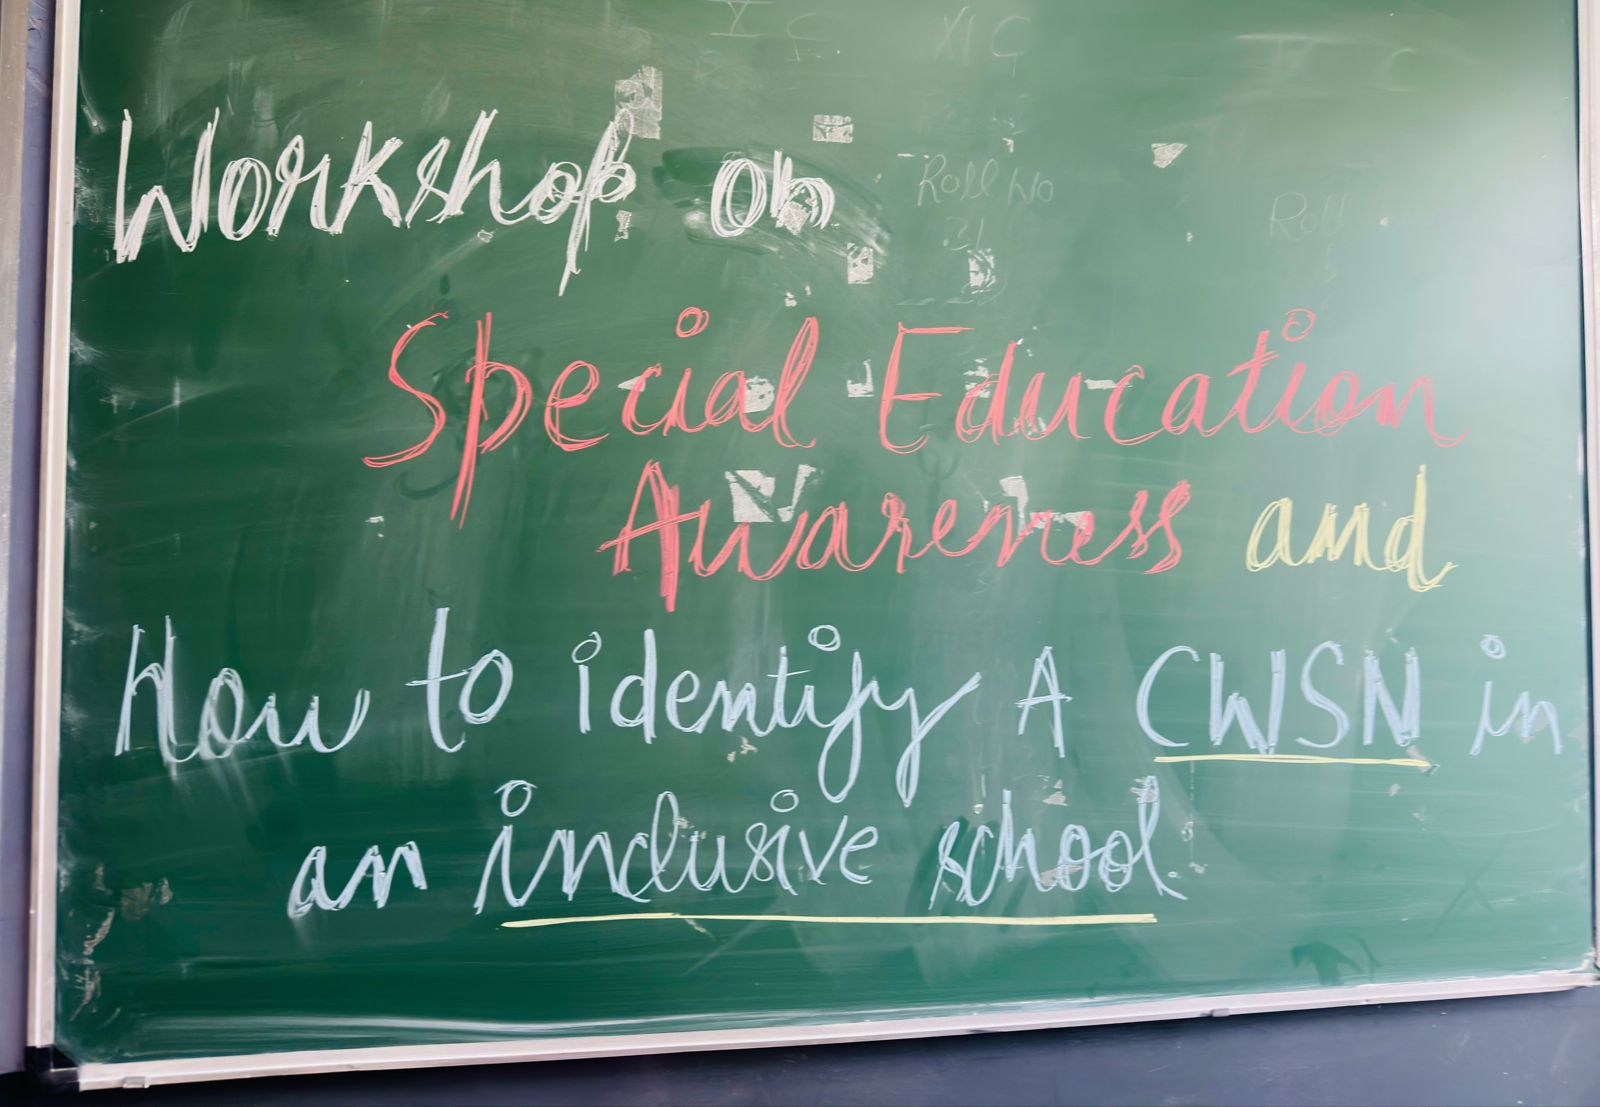 X C XI C
Workshop on
Roll No
21
Roll
Special Education
Awareness and
How to identify A CWSN in
an inclusive school.